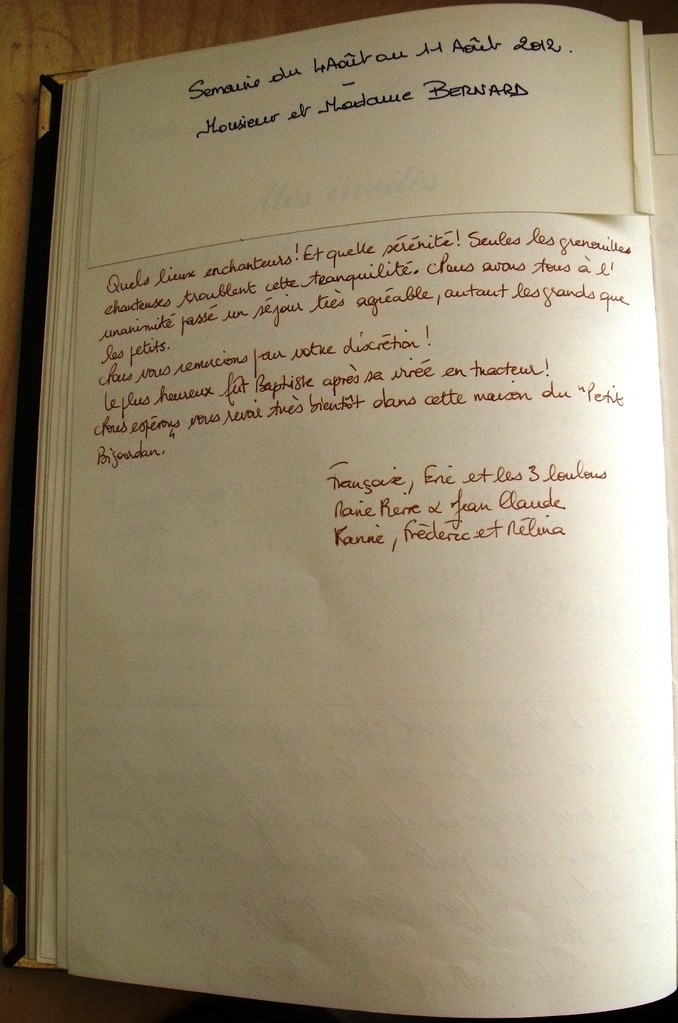 Semaine du 4 Août au 11 Août 2012.
Monsieur et Madame BERNARD
Quels lieux enchanteurs! Et quelle sérénité! Seules les grenouilles
chanteuses troublent cette tranquilité. Nous avons tous à l'
unanimité passé un séjour très agréable, autant les grands que
les petits.
Nous vous remercions pour votre discrétion!
Le plus heureux fût Baptiste après sa virée en tracteur!
Nous espérons vous revoir très bientôt dans cette maison du "Petit
Bijourdan."
Françoise, Eric et les 3 loulous
Marie Pierre & Jean Claude
Karine, Frédéric et Mélina